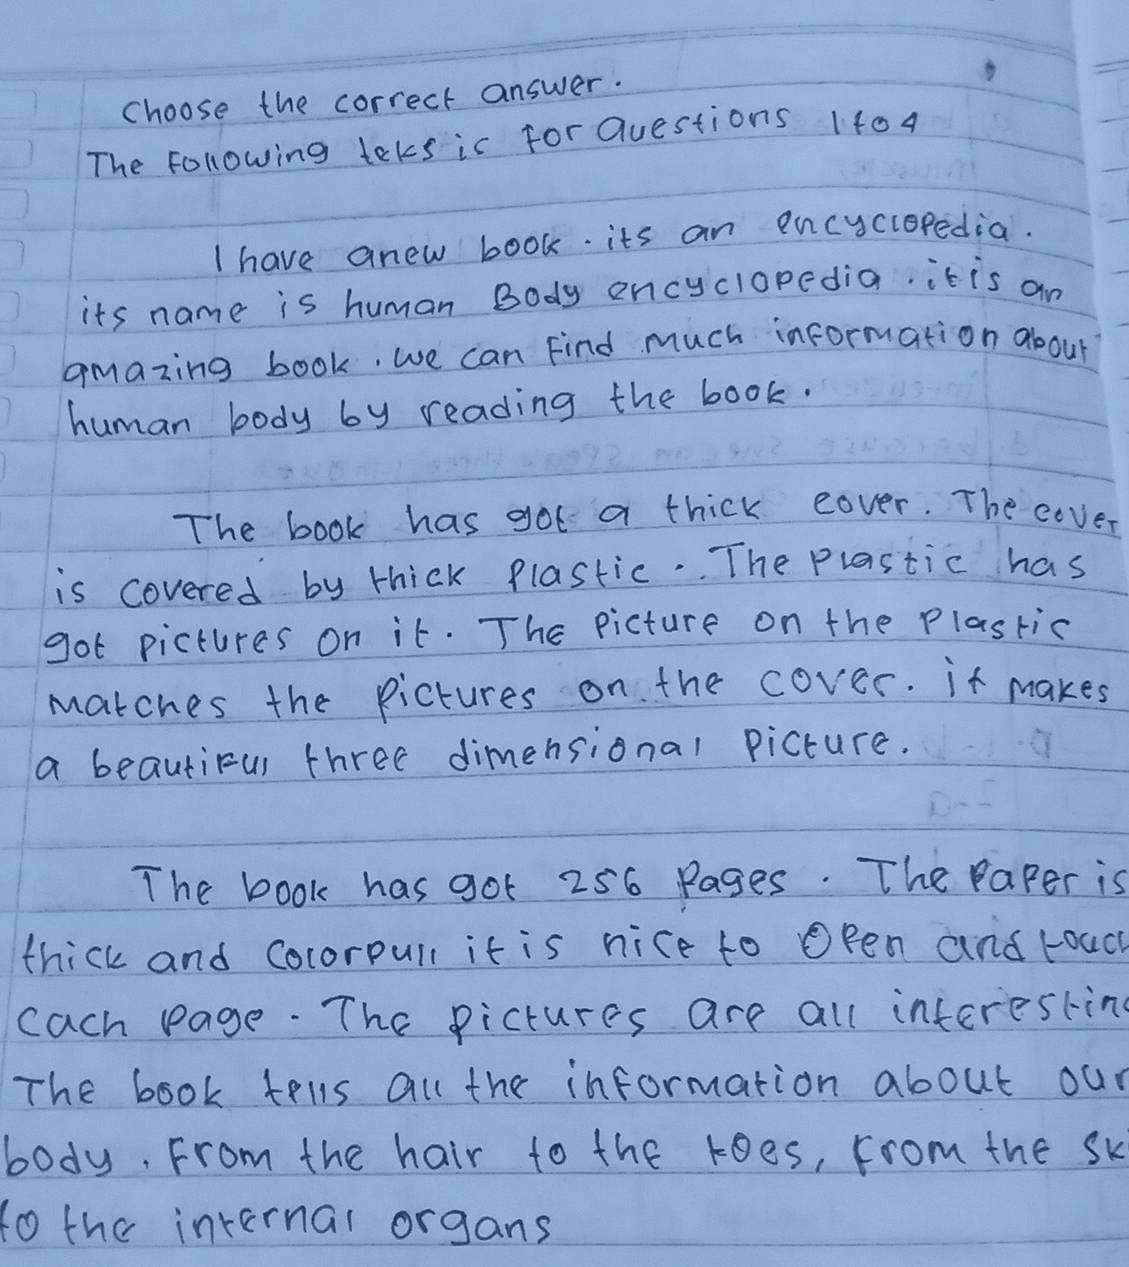 Choose the correct answer.
The Following teks is for Questions 1 to 4
I have a new book. its an encyclopedia.
its name is human Body encyclopedia. it is an
amazing book. we can Find much information about
human body by reading the book.
The book has got a thick cover. The cover
is covered by thick plastic. The plastic has
got pictures on it. The picture on the plastic
matches the pictures on the cover. it makes
a beautiful three dimensional picture.
The book has got 256 Pages. The Paper is
thick and Colorpull it is nice to Open and touch
each page. The pictures are all interesting
The book tells all the information about our
body. From the hair to the toes, From the sk
to the internal organs